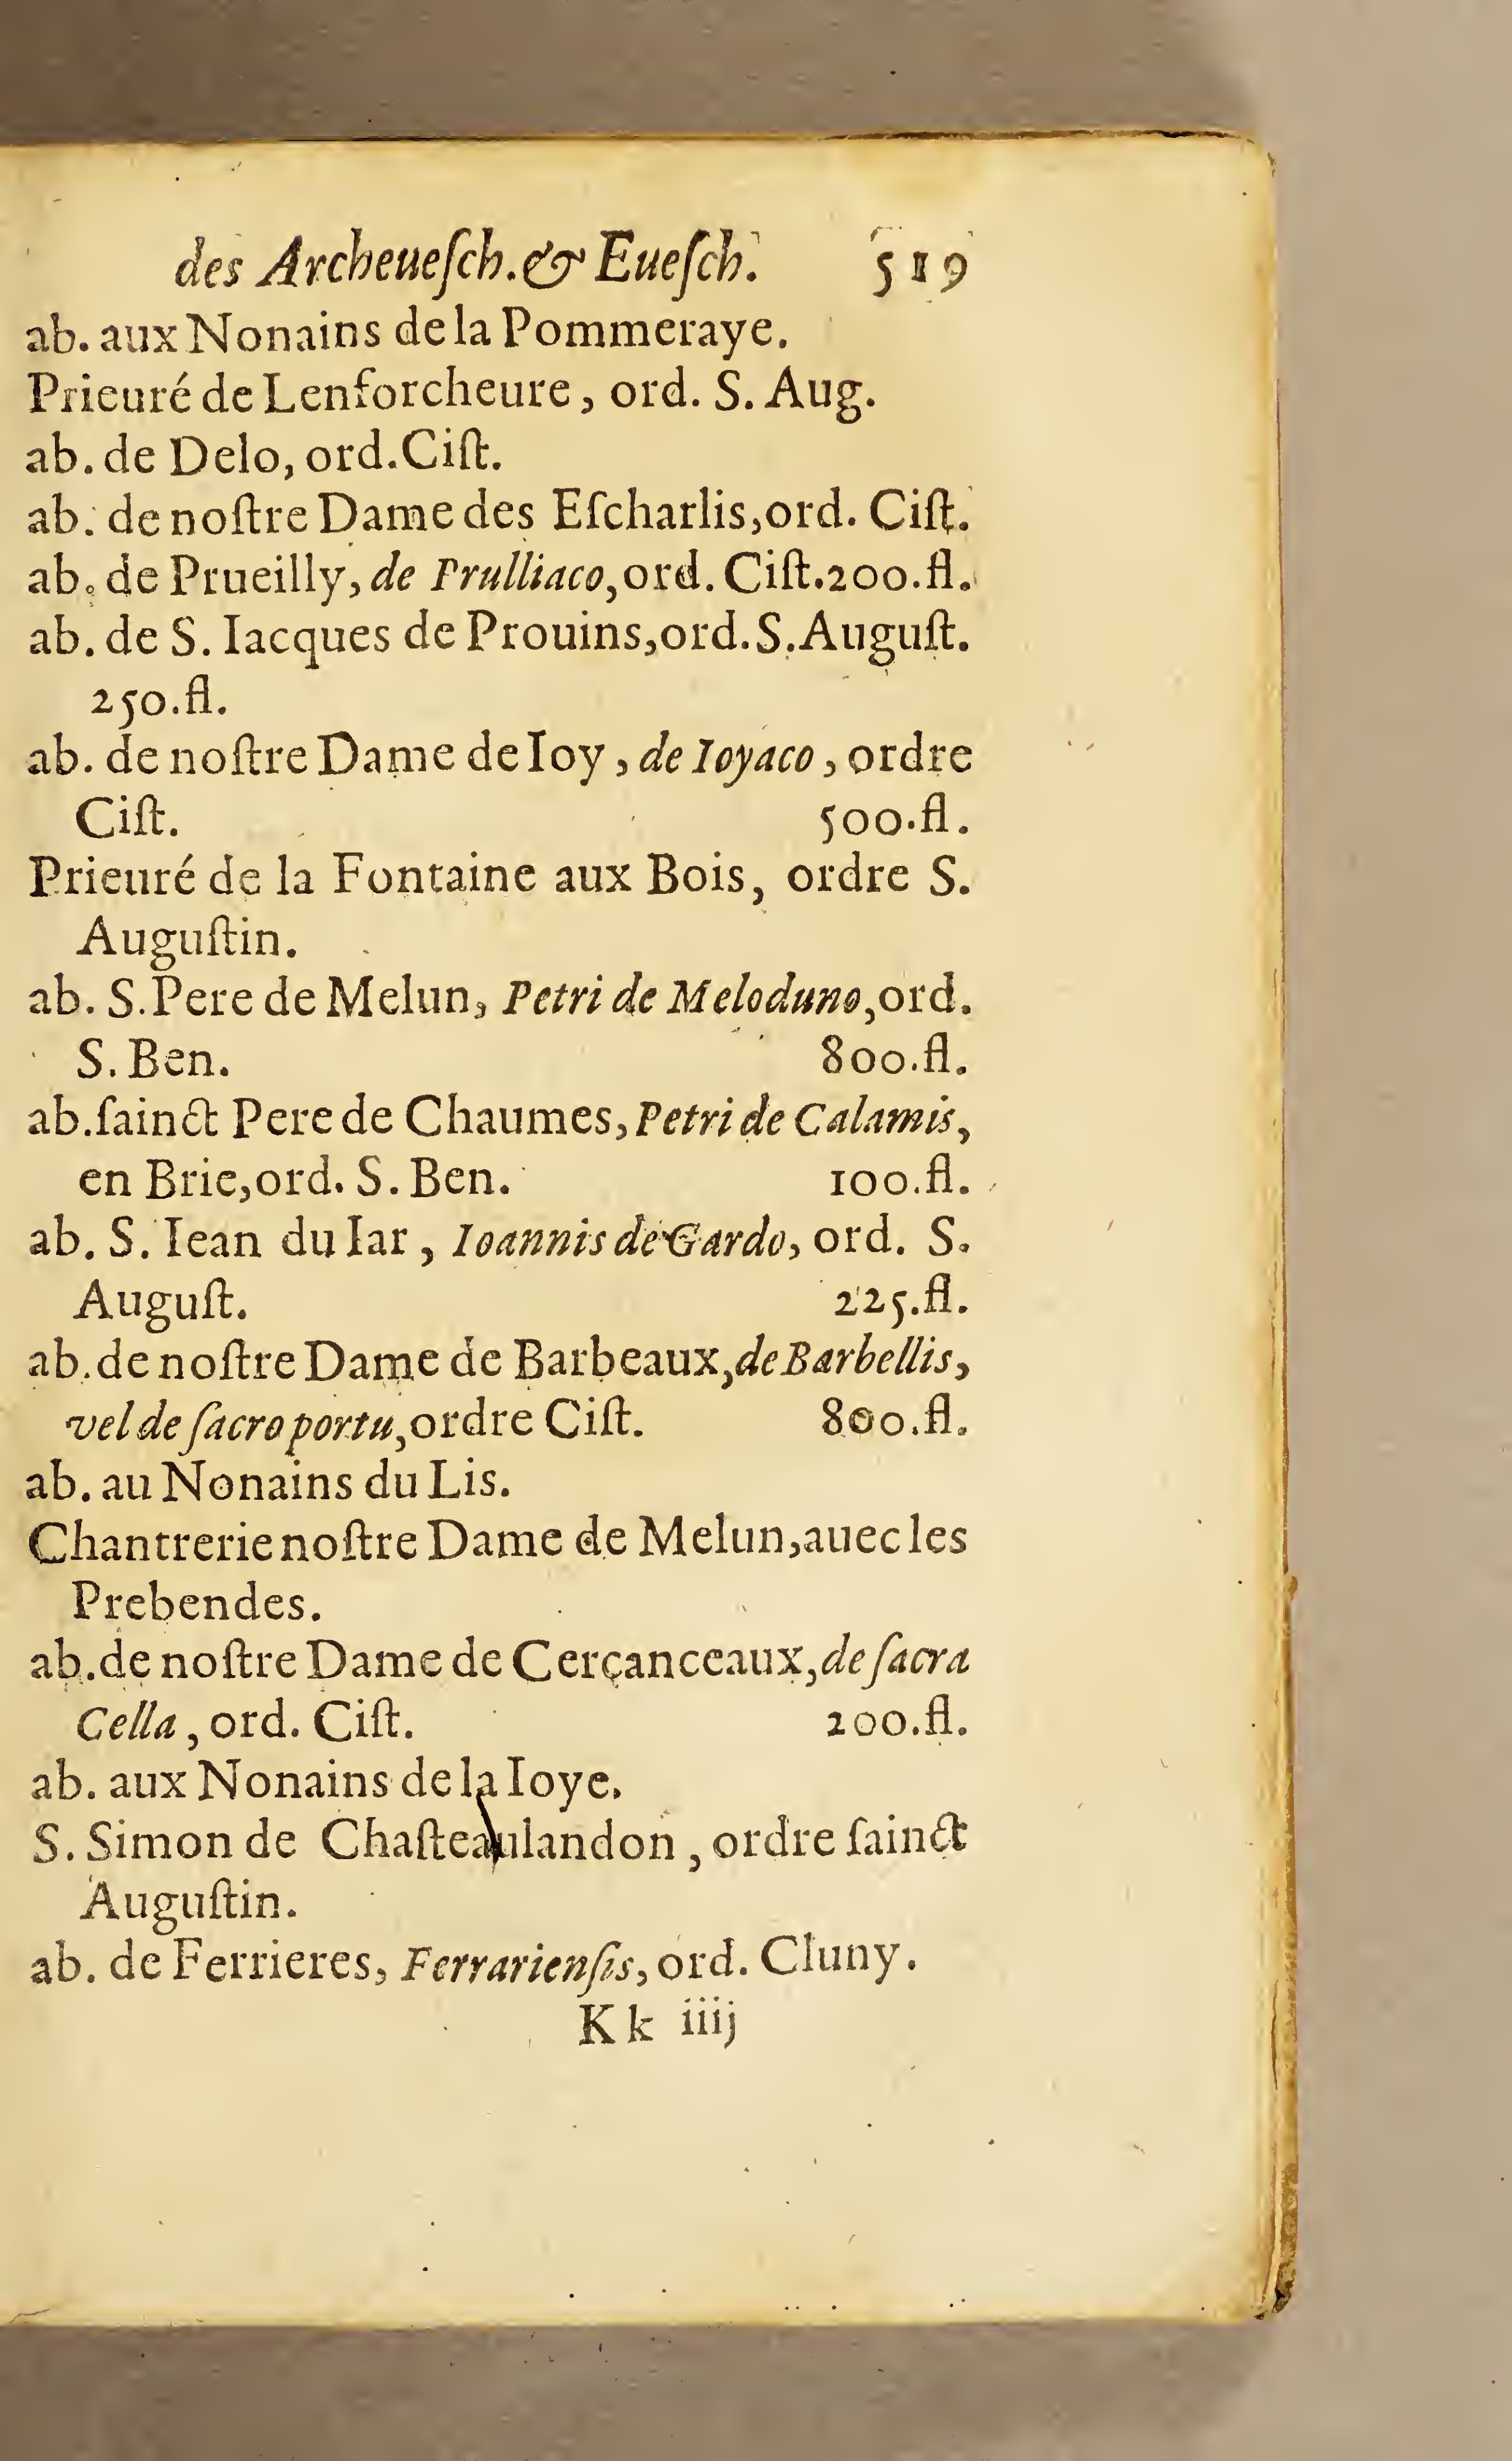 des Archeueſch. & Eueſch. 519
ab. aux Nonains de la Pommeraye.
Prieuré de Lenforcheure, ord. S. Aug.
ab. de Delo, ord. Ciſt.
ab. de noſtre Dame des Eſcharlis, ord. Ciſt.
ab. de Prueilly, de Prulliaco, ord. Ciſt. 200. fl.
ab. de S. Iacques de Prouins, ord. S. Auguſt.
250. fl.
ab. de noſtre Dame de Ioy, de Ioyaco, ordre
Ciſt. 500. fl.
Prieuré de la Fontaine aux Bois, ordre S.
Auguſtin.
ab. S. Pere de Melun, Petri de Meloduno, ord.
S. Ben. 800. fl.
ab. ſainct Pere de Chaumes, Petri de Calamis,
en Brie, ord. S. Ben. 100. fl.
ab. S. Iean du Iar, Ioannis de Gardo, ord. S.
Auguſt. 225. fl.
ab. de noſtre Dame de Barbeaux, de Barbellis,
vel de ſacro portu, ordre Ciſt. 800. fl.
ab. au Nonains du Lis.
Chantrerie noſtre Dame de Melun, auec les
Prebendes.
ab. de noſtre Dame de Cerçanceaux, de ſacra
Cella, ord. Ciſt. 200. fl.
ab. aux Nonains de la Ioye.
S. Simon de Chaſteaulandon, ordre ſainct
Auguſtin.
ab. de Ferrieres, Ferrarienſis, ord. Cluny.
Kk iiij